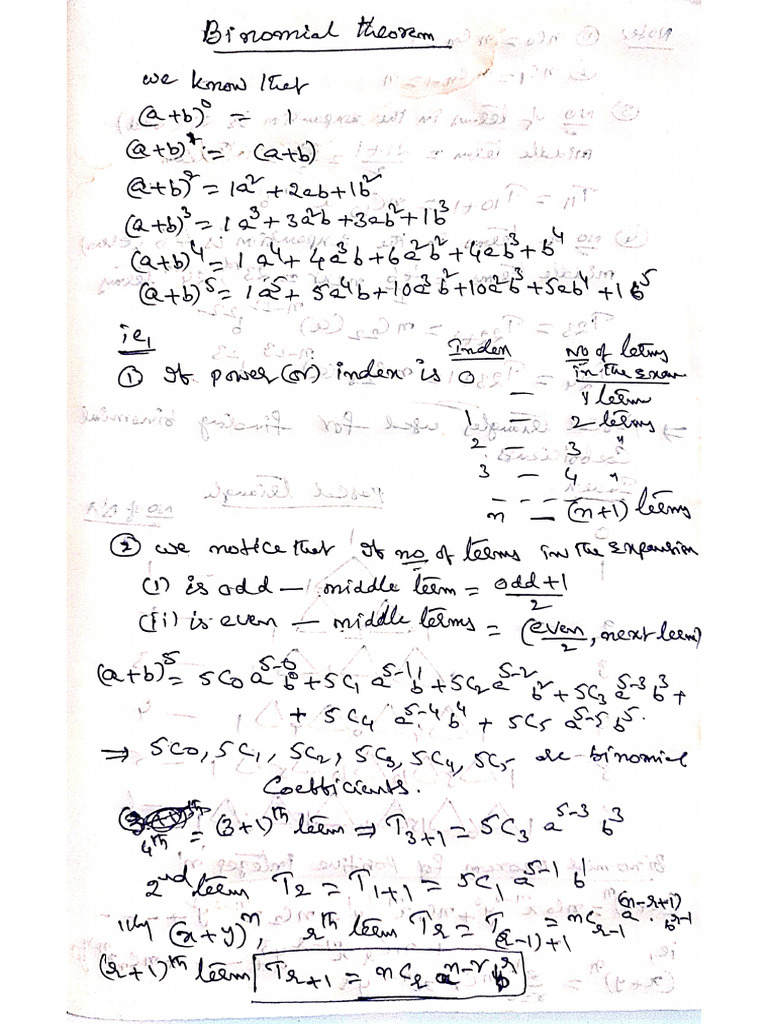 Binomial theorem
we know that
(a+b)⁰ = 1
(a+b)¹ = (a+b)
(a+b)² = 1a² + 2ab + 1b²
(a+b)³ = 1a³ + 3a²b + 3ab² + 1b³
(a+b)⁴ = 1a⁴ + 4a³b + 6a²b² + 4ab³ + b⁴
(a+b)⁵ = 1a⁵ + 5a⁴b + 10a³b² + 10a²b³ + 5ab⁴ + 1b⁵
ie,
Index No of terms
① If power (or) index is 0 — in the expan
1 term
1 — 2 terms
2 — 3 "
3 — 4 "
n — (n+1) terms
② we notice that If no of terms in the expansion
(i) is odd — middle term = odd+1/2
(ii) is even — middle terms = (even/2, next term)
(a+b)⁵ = 5C0 a⁵⁻⁰ b⁰ + 5C1 a⁵⁻¹ b¹ + 5C2 a⁵⁻² b² + 5C3 a⁵⁻³ b³ +
+ 5C4 a⁵⁻⁴ b⁴ + 5C5 a⁵⁻⁵ b⁵.
⇒ 5C0, 5C1, 5C2, 5C3, 5C4, 5C5 are binomial
Coefficients.
4th = (3+1)th term ⇒ T3+1 = 5C3 a⁵⁻³ b³
2nd term T2 = T1+1 = 5C1 a⁵⁻¹ b¹
llly (x+y)ⁿ, rth term Tr = T(r-1)+1 = nCr-1 a^(n-r+1) . b^r-1
(r+1)th term Tr+1 = nCr a^n-r b^r